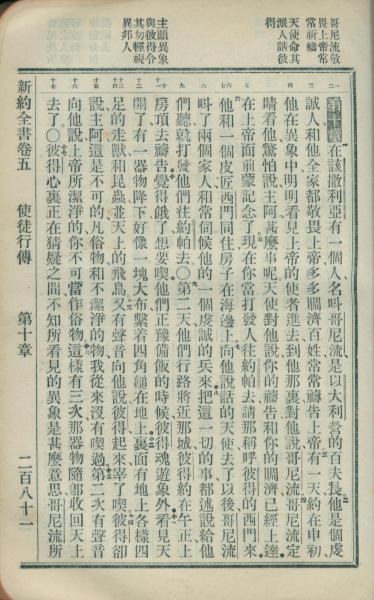 哥尼流敬
畏上帝常
常祈禱
天使命其
派人請彼
得
主顯異象
與彼得令
其勿輕視
異邦人
第十章
在該撒利亞有一個人名呌哥尼流是以大利營的百夫長他是個虔
誠人和他全家都敬畏上帝多多賙濟百姓常常禱告上帝有一天約在申初
他在異象中明明看見上帝的使者進去到他那裏對他說哥尼流哥尼流定
睛看他驚怕說主阿甚麼事呢天使對他說你的禱告和你的賙濟已經上達
在上帝面前蒙記念了現在你當打發人往約帕去請那稱呼彼得的西門來
他和一個皮匠西門同住房子在海邊上向他說話的天使去了以後哥尼流
呌了兩個家人和常伺候他的一個虔誠的兵來把這一切的事都述說給他
們聽就打發他們往約帕去○第二天他們行路將近那城彼得約在午正上
房頂去禱告覺得餓了想要喫他們正豫備飯的時候彼得魂遊象外看見天
開了有一器物降下好像一塊大布繫着四角縋在地上裏面有地上各樣四
足的走獸和昆蟲並天上的飛鳥又有聲音向他說彼得起來宰了喫彼得卻
說主阿這是不可的凡俗物和不潔淨的物我從來沒有喫過第二次有聲音
向他說上帝所潔淨的你不可當作俗物這樣有三次那器物隨卽收回天上
去了○彼得心裏正在猜疑之間不知所看見的異象是甚麼意思哥尼流所
新約全書卷五 使徒行傳 第十章 二百八十一